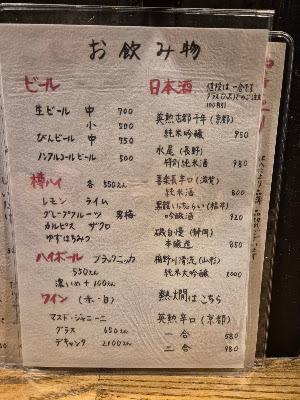 お飲み物
ビール
生ビール 中 700
小 500
びんビール 中 750
ノンアルコールビール 500
樽ハイ 各 550えん
レモン ライム
グレープフルーツ 男梅
カルピス ザクロ
ゆずはちみつ
ハイボール ブラックニッカ
550えん
濃いめ + 100えん
ワイン (赤・白)
マスド・ジャニーニ
グラス 650えん
デキャンタ 2100えん
日本酒
一合です
100円引
英勲 古都千年 (京都)
純米吟醸 950
水尾 (長野)
特別純米酒 980
喜楽長 辛口 (滋賀)
純米酒 800
黒龍 いっちょらい (福井)
吟醸酒 920
磯自慢 (静岡)
本醸造 850
楯野川 清流 (山形)
純米大吟醸 1000
熱燗はこちら
英勲 辛口 (京都)
一合 580
二合 980